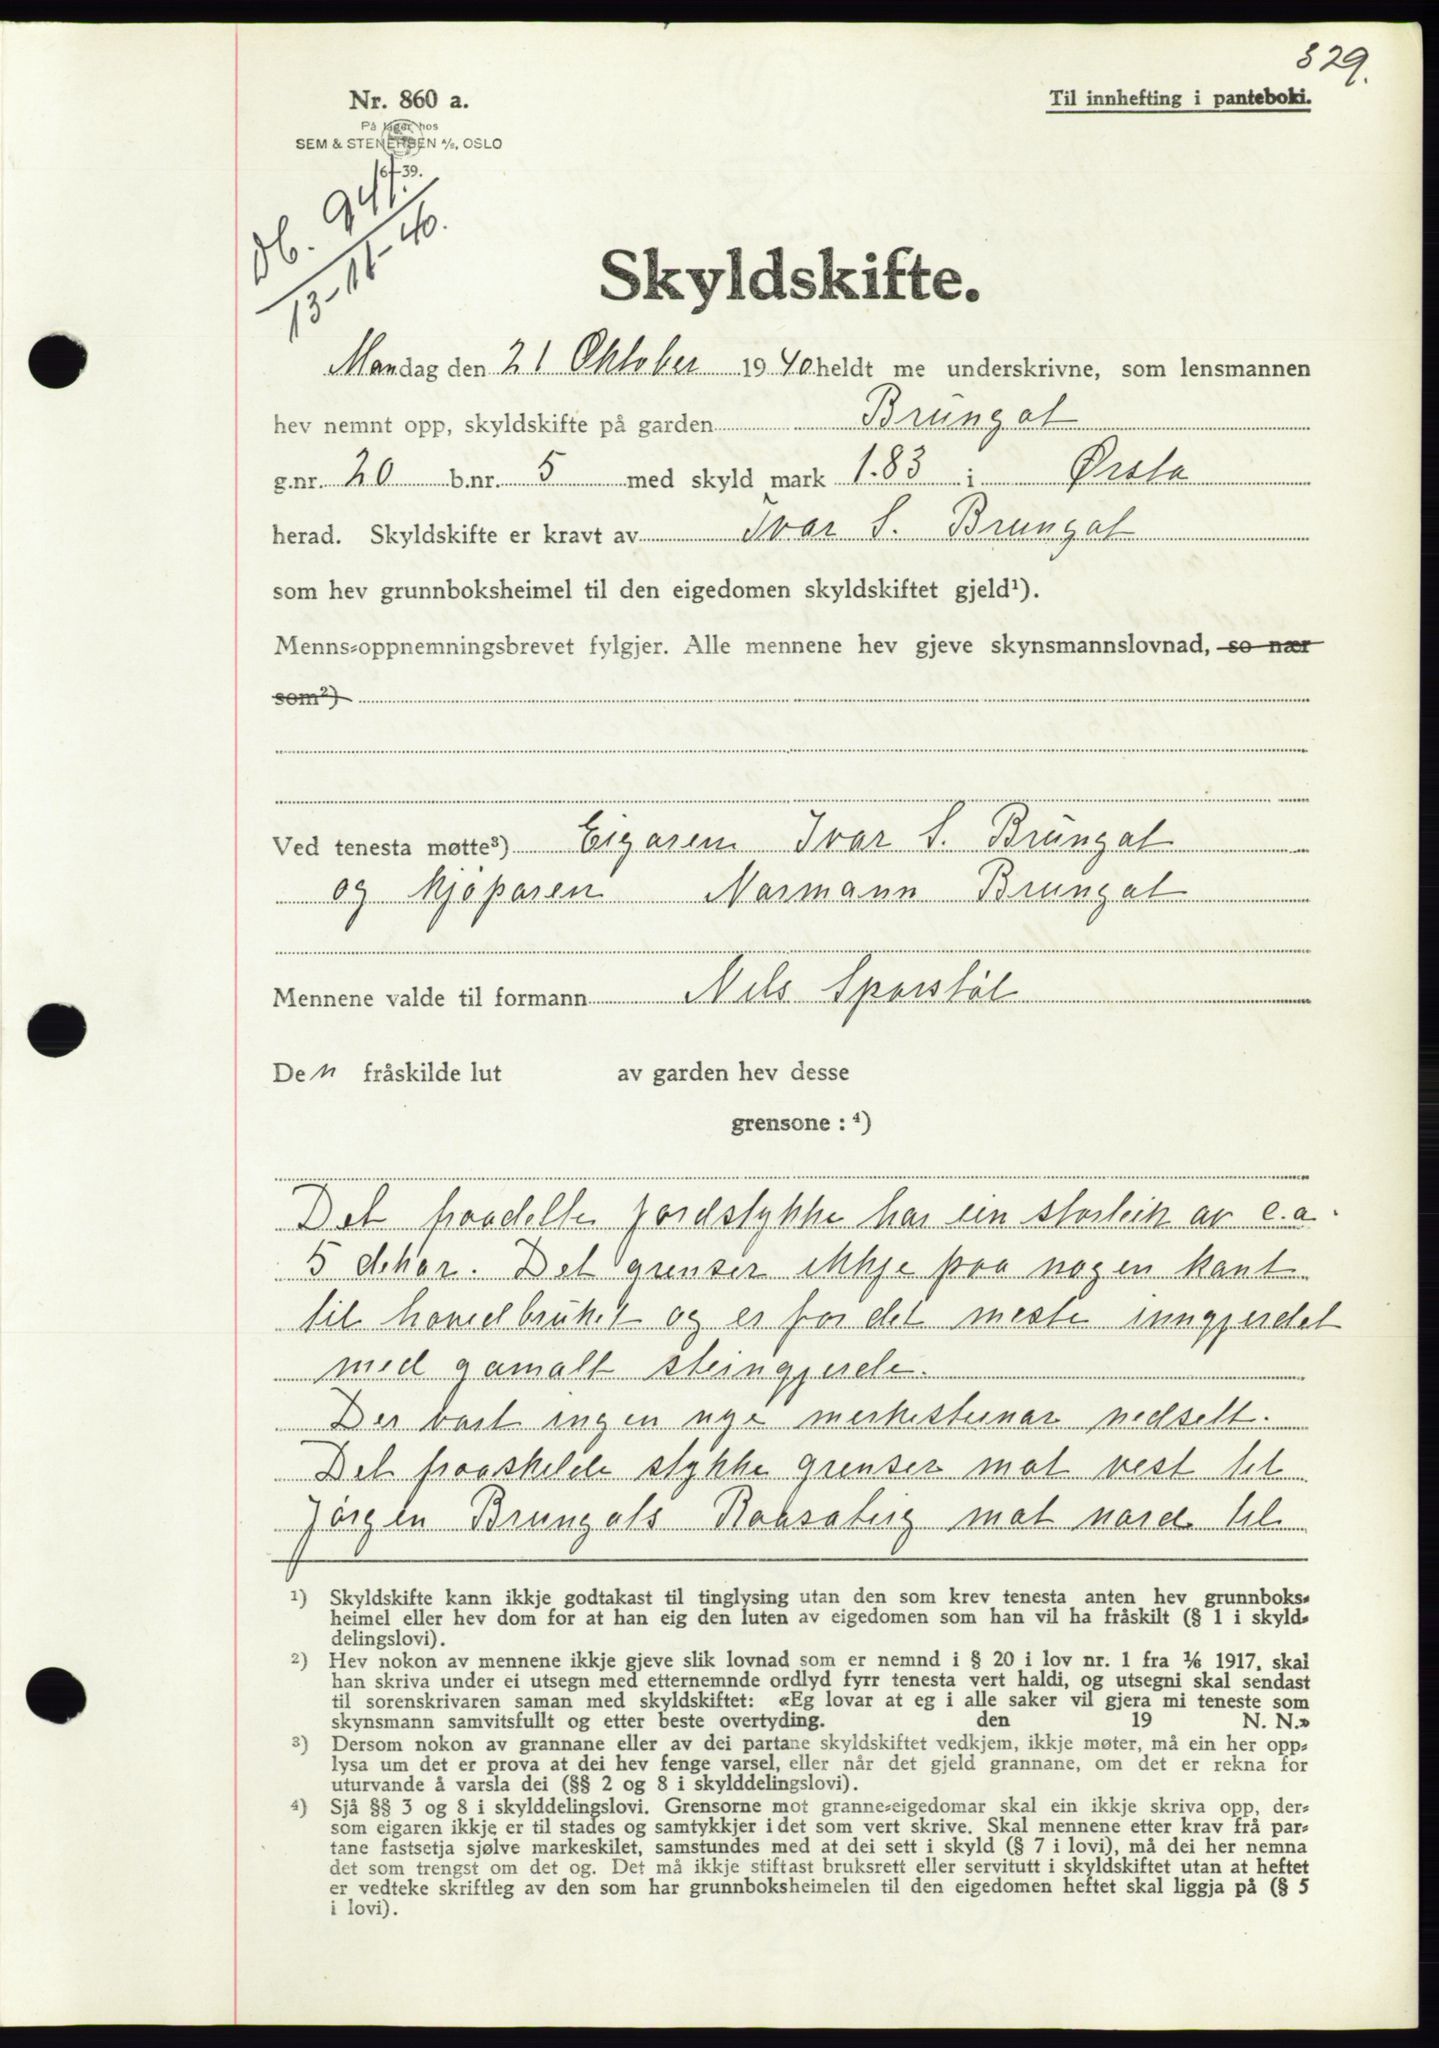 329.
Nr. 860 a.
Til innhefting i panteboki.
På lager hos
SEM & STENERSEN A/S, OSLO
6–39.
Db. 941.
13-11-40.
Skyldskifte.
Mandag den 21 Oktober 1940 heldt me underskrivne, som lensmannen
hev nemnt opp, skyldskifte på garden Brungot
g.nr. 20 b.nr. 5 med skyld mark 1.83 i Ørsta
herad. Skyldskifte er kravt av Ivar S. Brungot
som hev grunnboksheimel til den eigedomen skyldskiftet gjeld¹).
Menns-oppnemningsbrevet fylgjer. Alle mennene hev gjeve skynsmannslovnad, so nær
som²)
Ved tenesta møtte³) Eigaren Ivar S. Brungot
og kjøparen Normann Brungot
Mennene valde til formann Nils Sporstøl
Den fråskilde lut av garden hev desse
grensone : ⁴)
Det fraadelte jordstykke har ein storleik av c.a.
5 dekar. Det grenser ikkje paa nogen kant
til hovedbruket og er for det meste inngjerdet
med gamalt steingjerde.
Der vart ingen nye merkesteinar nedsett.
Det fraaskilde stykke grenser mot vest til
Jørgen Brungots Raasateig mot nord til
¹) Skyldskifte kann ikkje godtakast til tinglysing utan den som krev tenesta anten hev grunnboks-
heimel eller hev dom for at han eig den luten av eigedomen som han vil ha fråskilt (§ 1 i skyld-
delingslovi).
²) Hev nokon av mennene ikkje gjeve slik lovnad som er nemnd i § 20 i lov nr. 1 fra 1/6 1917, skal
han skriva under ei utsegn med etternemnde ordlyd fyrr tenesta vert haldi, og utsegni skal sendast
til sorenskrivaren saman med skyldskiftet: «Eg lovar at eg i alle saker vil gjera mi teneste som
skynsmann samvitsfullt og etter beste overtyding. den 19 N. N.»
³) Dersom nokon av grannane eller av dei partane skyldskiftet vedkjem, ikkje møter, må ein her opp-
lysa um det er prova at dei hev fenge varsel, eller når det gjeld grannane, om det er rekna for
uturvande å varsla dei (§§ 2 og 8 i skylddelingslovi).
⁴) Sjå §§ 3 og 8 i skylddelingslovi. Grensorne mot granne-eigedomar skal ein ikkje skriva opp, der-
som eigaren ikkje er til stades og samtykkjer i det som vert skrive. Skal mennene etter krav frå par-
tane fastsetja sjølve markeskilet, samstundes med at dei sett i skyld (§ 7 i lovi), må dei her nemna
det som trengst om det og. Det må ikkje stiftast bruksrett eller servitutt i skyldskiftet utan at heftet
er vedteke skriftleg av den som har grunnboksheimelen til den eigedomen heftet skal liggja på (§ 5
i lovi).